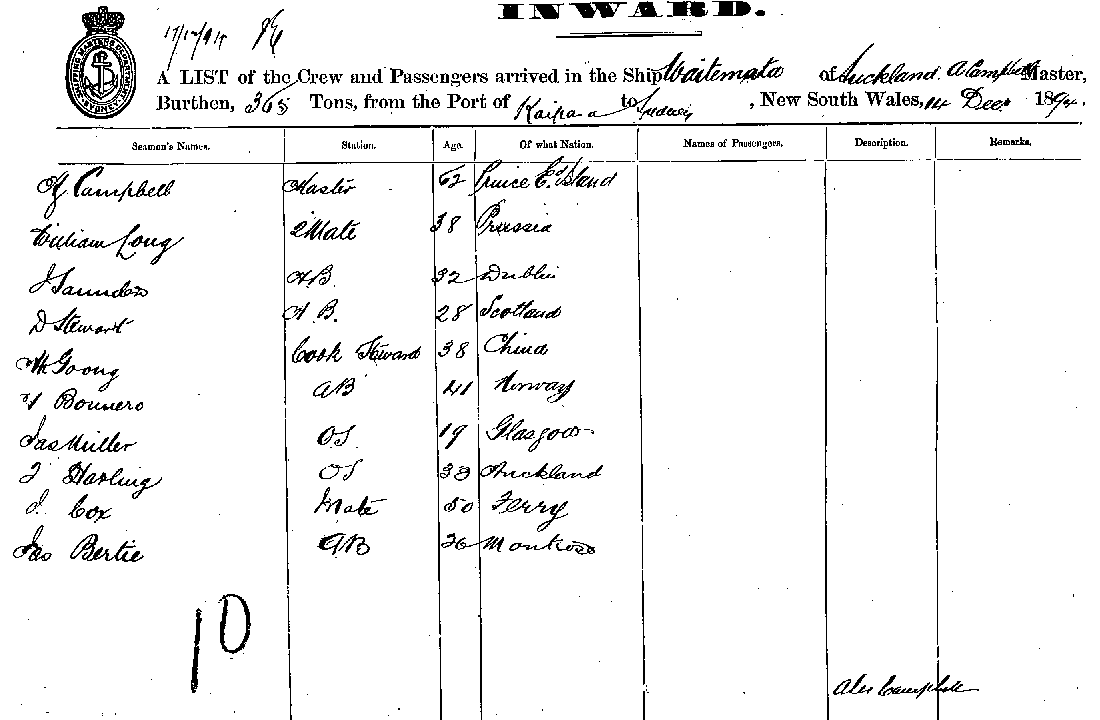 INWARD.
17/12/94
A LIST of the Crew and Passengers arrived in the Ship Waitemata of Auckland A Campbell Master,
Burthen, 365 Tons, from the Port of Kaipara to Sydney, New South Wales, 14 Decr 1894.
Seamen's Names. Station. Age. Of what Nation. Names of Passengers. Description. Remarks.
A Campbell Master 62 Prince Ed Island
William Long 2 Mate 38 Prussia
J Saunders AB. 32 Dublin
D Stewart A B. 28 Scotland
Cook Steward 38 China
AB 41 Norway
Jas Miller OS 19 Glasgow
Harling OS 33 Auckland
Cox Mate 50 Ferry
Jas Bertie AB 26 Montrose
10
Alex Campbell